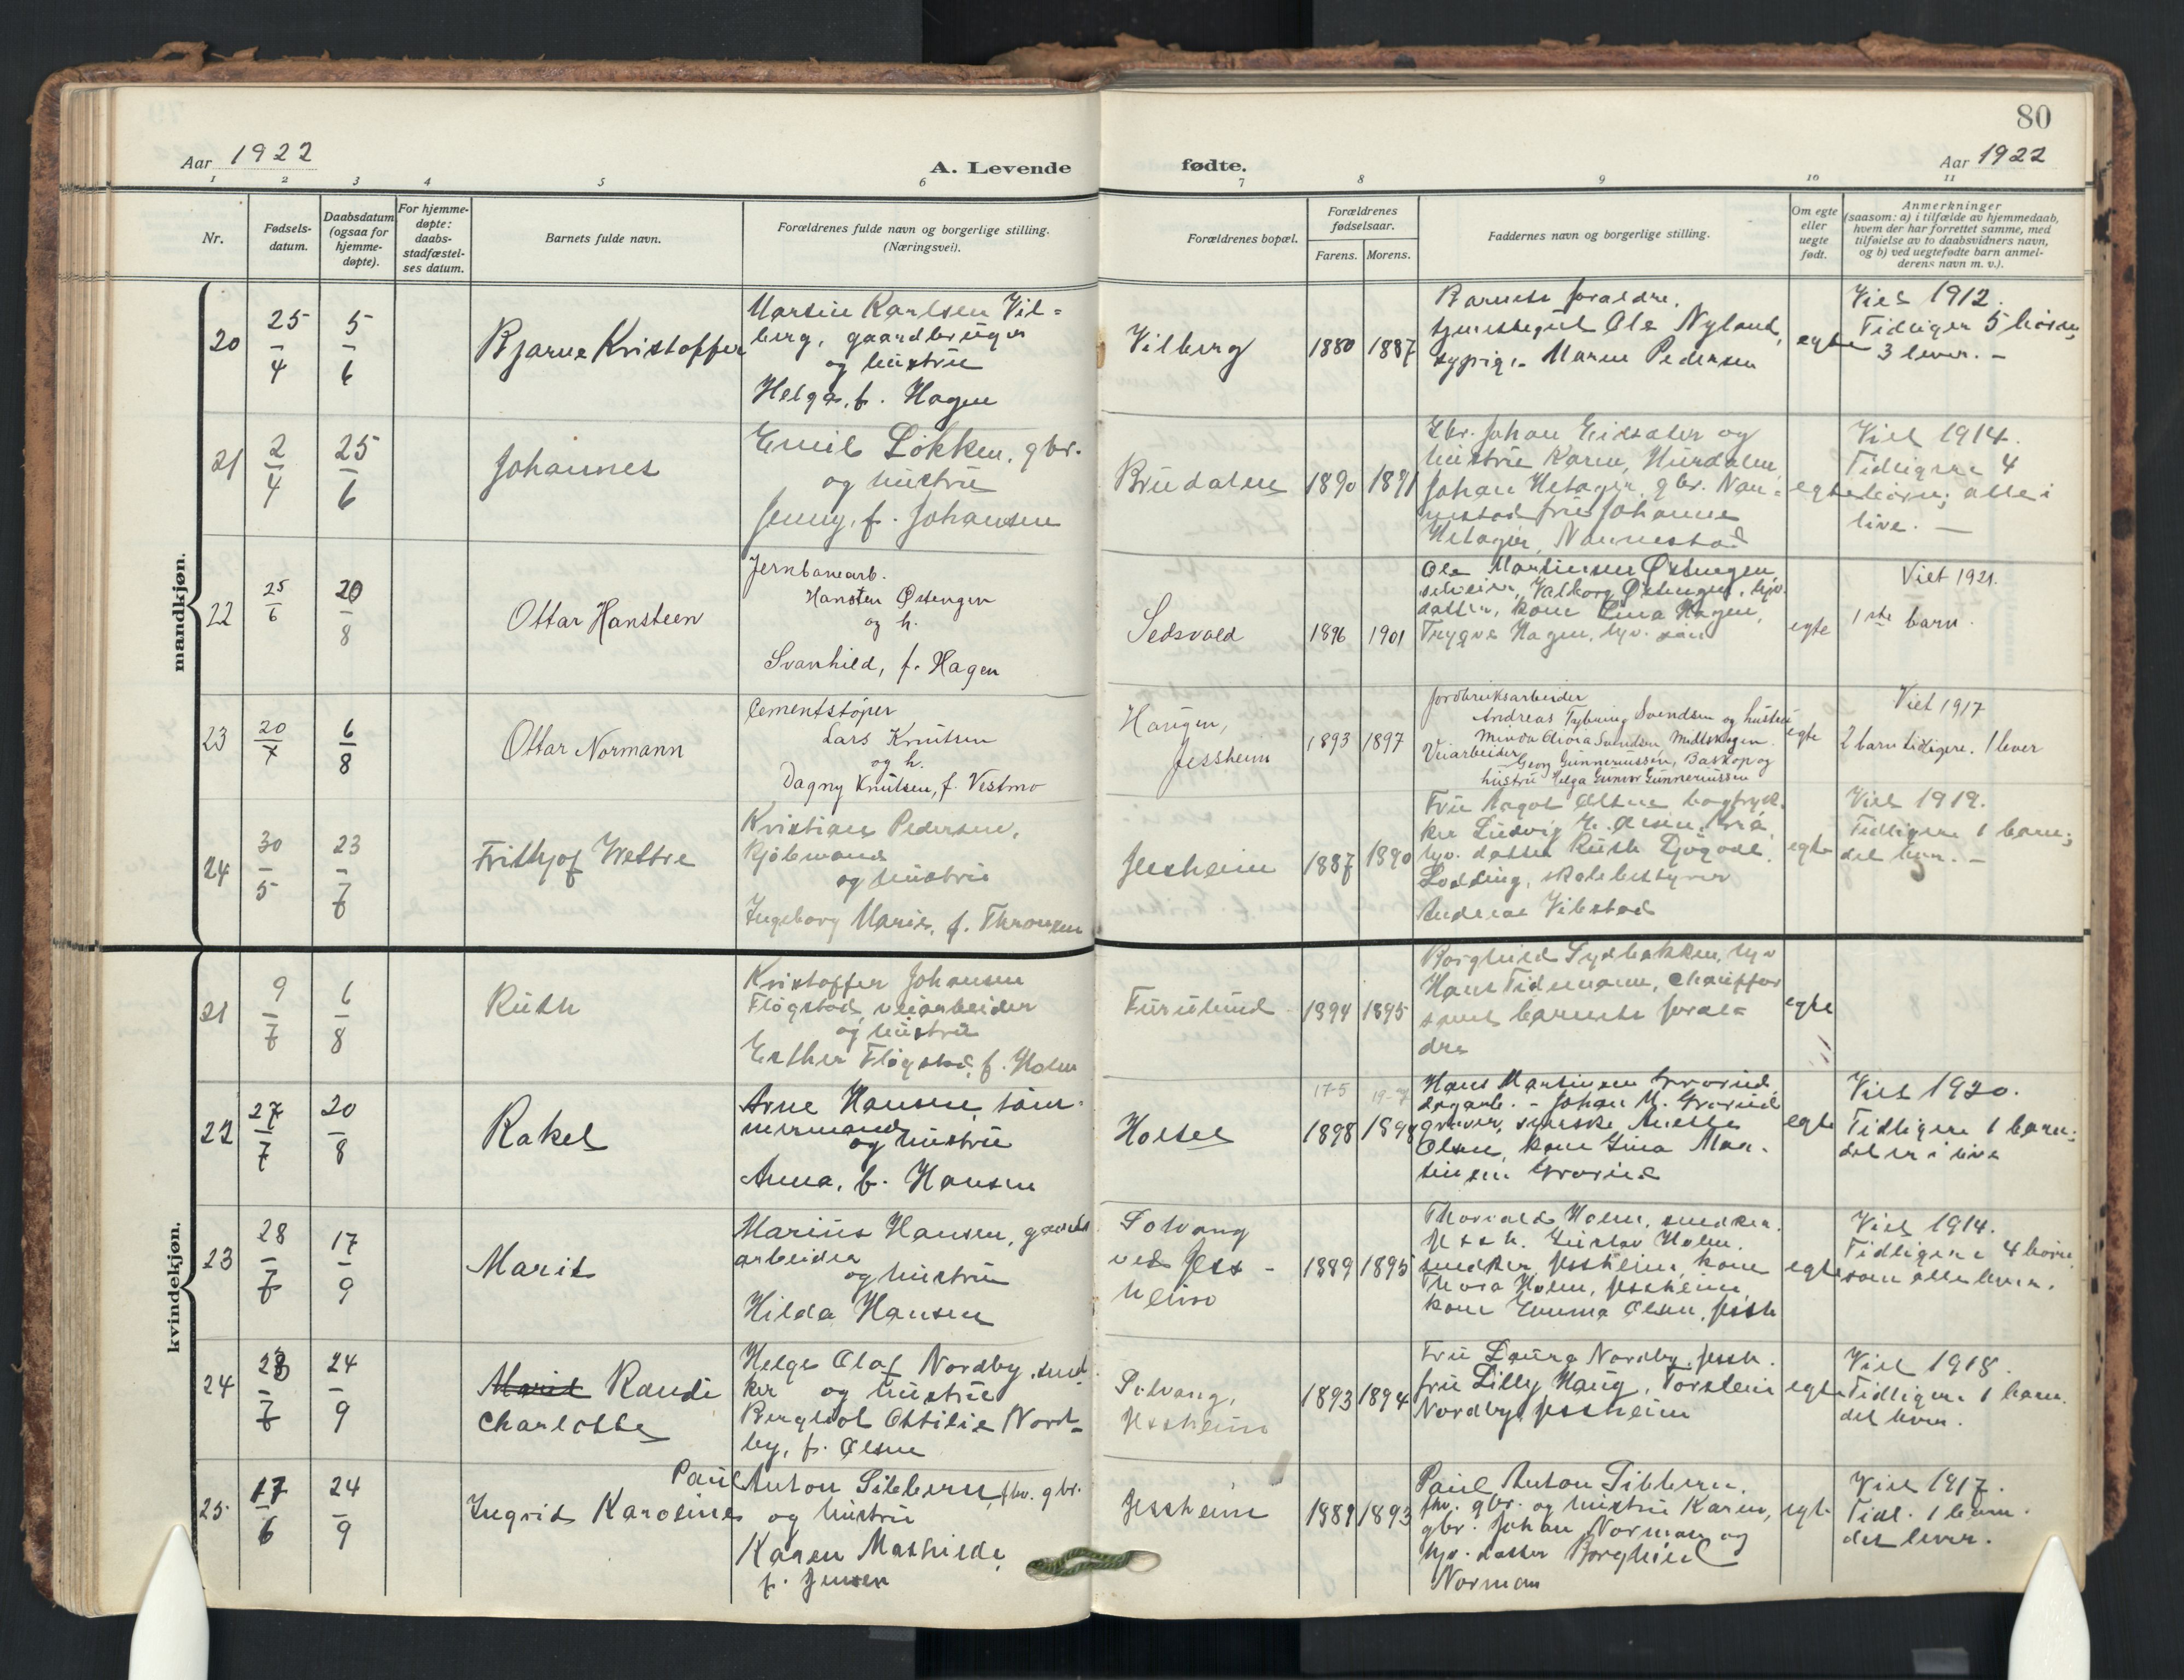 80
Aar 1922
A. Levende
fødte.
Aar 1922
1 2 3 4 5 6 7 8 9 10 11
Nr.
Fødsels-
datum.
Daabsdatum
(ogsaa for
hjemme-
døpte).
For hjemme-
døpte:
daabs-
stadfæstel-
ses datum.
Barnets fulde navn.
Forældrenes fulde navn og borgerlige stilling.
(Næringsvei).
Forældrenes bopæl.
Forældrenes
fødselsaar.
Farens. Morens.
Faddernes navn og borgerlige stilling.
Om egte
eller
uegte
født.
Anmerkninger
(saasom: a) i tilfælde av hjemmedaab,
hvem der har forrettet samme, med
tilføielse av to daabsvidners navn,
og b) ved uegtefødte barn anmel-
derens navn m. v.).
mandkjøn.
20
25/4
5/6
Bjarne Kristoffer
Martin Karlsen Vil=
berg, gaardbruger
og hustru
Helga, f. Hagen
Vilberg
1880 1887
Barnets forældre,
Ole Nyland,
Maren Pedersen
egte
Viet 1912.
Tidligere 5 børn,
3 lever. –
21
2/4
25/6
Johannes
Emil Løkken, gbr.
og hustru
Jenny, f. Johansen
Brudalen
1890 1891
Gbr. Johan Eidsater og
hustru Karen, Hurdalen,
Johan Helager, gbr. Nan-
nestad fru Johanne
Helager, Nannestad
egte
Viet 1914.
Tidligere 4
børn; alle i
live. –
22
25/6
20/8
Ottar Hansteen
Jernbanearb.
Hansten Østengen
og h.
Svanhild, f. Hagen
Sedsvold
1896 1901
Ole Martinsen Østengen
Valborg Østengen, hjv.
datter, kone Lina Hagen,
Trygve Hagen, hjv. søn
egte
Viet 1921.
1ste barn.
23
20/7
6/8
Ottar Normann
Cementstøper
Lars Knutsen
og h.
Dagny Knutsen, f. Vestmo
Haugen,
Jessheim
1893 1897
Jordbruksarbeider
Andreas Tybring Svendsen og hustru
Minda Olivia Svendsen, Midtskogen.
Veiarbeider
Georg Gunnerussen, Baskop og
hustru Helga Gunvor Gunnerussen
egte
Viet 1917
2 barn tidligere. 1 lever
24
30/5
23/7
Frithjof Wettre
Kristian Pedersen,
kjøbmand
og hustru
Ingeborg Marie, f. Thronsen
Jessheim
1887 1890
Fru Aagot Olsen, bogtryk-
ker Ludvig
hjv. datter Ruth
Lodding, skolebestyrer
Andreas Vibstad
egte
Viet 1919.
Tidligere 1 barn;
det lever. –
kvindekjøn.
21
9/7
6/8
Ruth
Kristoffer Johansen
Fløgstad, veiarbeider
og hustru
Esther Fløgstad, f. Holm
Furulund
1894 1895
Borghild Sydbakken, hjv
Hans Tidemann, Chauffør
samt barnets foræl=
dre
egte
22
27/7
20/8
Rakel
Arne Hansen, tøm-
mermand
og hustru
Anna, f. Hansen
Holsel
17-5 19-7
1898 1898
Hans Martinsen Grorud,
dagarb. – Johan M. Grorud
graver, Anette
Olsen, kone Gina Mar-
tinsen Grorud
egte
Viet 1920.
Tidligere 1 barn;
det er i live
23
28/7
17/9
Marit
Marius Hansen, gaards
arbeider
og hustru
Hilda Hansen
Solvang
ved Jess-
heim
1889 1895
Thorvald Holm, snedker,
Jessh. Gustav Holm,
snedker Jessheim, kone
Thora Holm, Jessheim,
kone Emma Olsen, Jessh
egte
Viet 1914.
Tidligere 4 børn,
som alle lever.
24
28/7
24/9
Marit Randi
Charlotte
Helge Olaf Nordby, sned
ker og hustru
Bergliot Ottilie Nord-
by, f. Olsen
Solvang,
Jessheim
1893 1894
Fru Laura Nordby, Jessh.
fru Lilly Haug, Torstein
Nordby, Jessheim
egte
Viet 1918.
Tidligere 1 barn,
det lever.
25
17/6
24/9
Ingrid Karoline
Paul Anton Sibbern, fhv. gbr.
og hustru
Karen Mathilde,
f. Jensen
Jessheim
1889 1893
Paul Anton Sibbern,
fhv. gbr. og hustru Karen,
gbr. Johan Norman og
hjv. datter Borghild
Norman
egte
Viet 1917.
Tidl. 1 barn.
det lever.